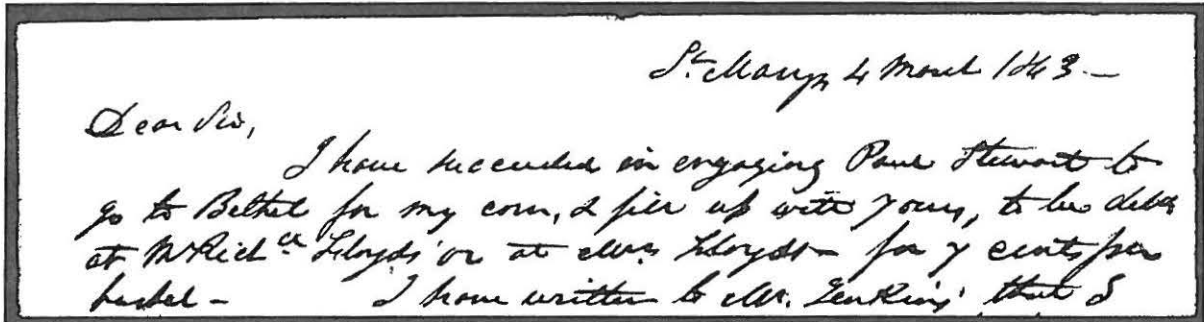 St. Marys 4 March 1843 —
Dear Sir,
I have succeeded in engaging Paul Stewart to
go to Bethel for my corn, & fill up with yours, to be deld
at Mr Richd Lloyds' or at Mrs Lloyds — for 7 cents per
bushel — I have written to Mr. Jenkins' that I